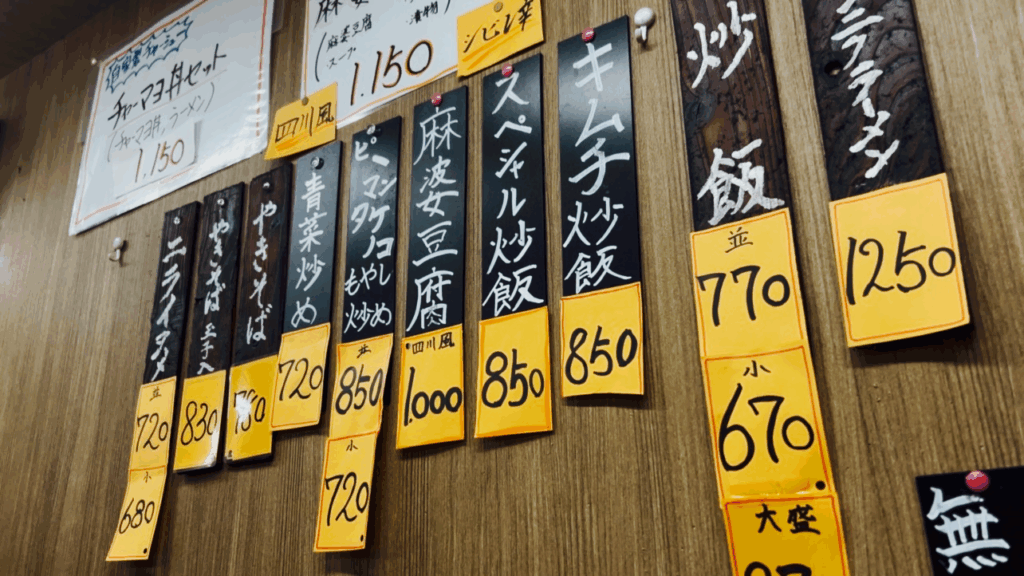 チャーマヨ丼セット
(チャーマヨ丼、ラーメン)
1.150
麻婆豆腐
スープ
漬物)
1.150
シビレ辛
四川風
ニライタメ
並
720
小
680
やきそば 玉子入
830
やきそば
780
青菜炒め
720
ピーマン
タケノコ
もやし
炒め
並
850
小
720
麻婆豆腐
四川風
1.000
スペシャル炒飯
850
キムチ炒飯
850
炒飯
並
770
小
670
大盛
ニララーメン
1250
無